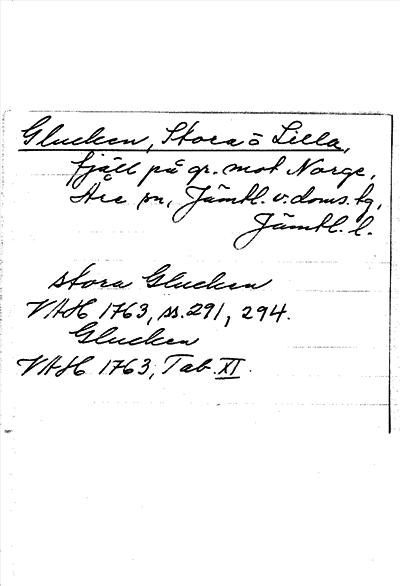 Glucken, Stora o Lilla,
fjäll på gr. mot Norge,
Åre sn, Jämtl. v. doms. tg,
Jämtl. l.
stora Glucken
VAH 1763, ss. 291, 294.
Glucken
VAH 1763, Tab. XI.